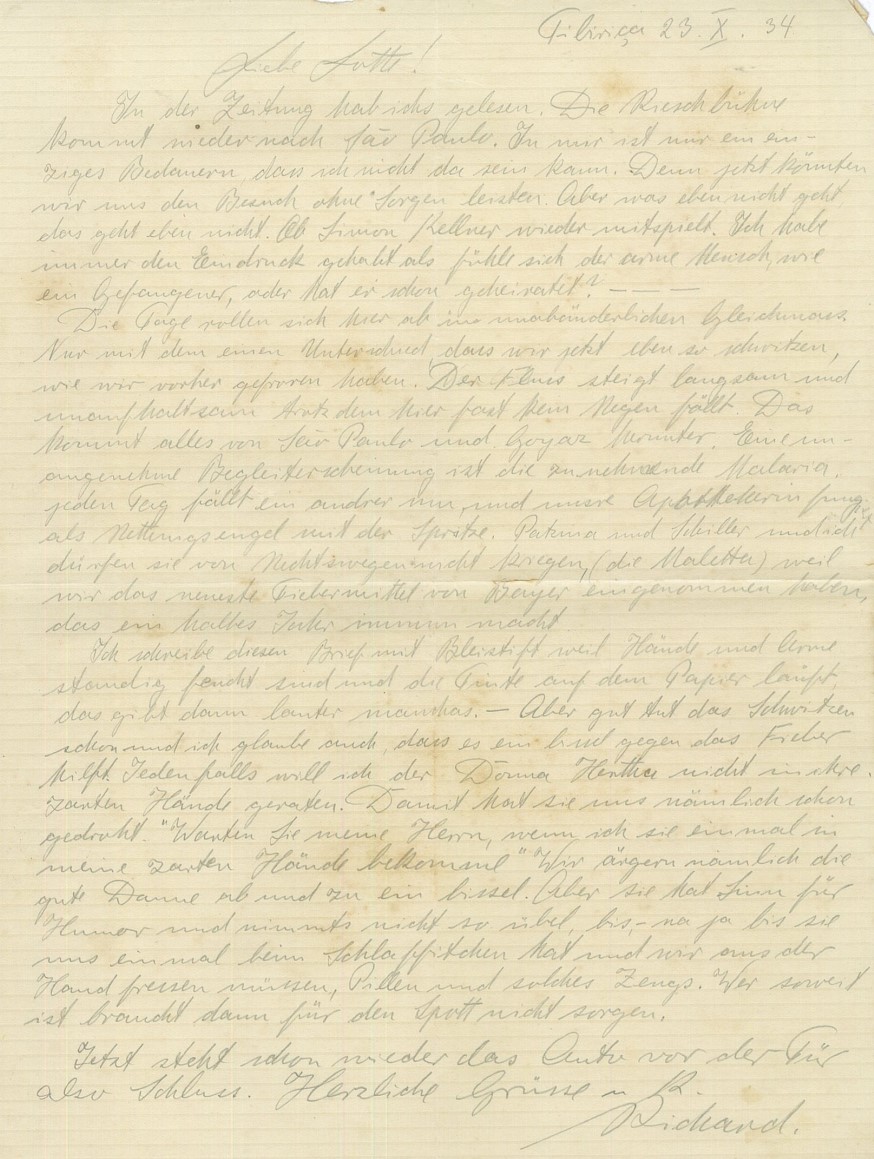 Tibiriça 23. X. 34
Liebe Lotte!
In der Zeitung hab ichs gelesen. Die Rieschbühne
kommt wieder nach São Paulo. In mir ist nur ein ein-
ziges Bedauern, dass ich nicht da sein kann. Denn jetzt könnten
wir uns den Besuch ohne Sorgen leisten. Aber was eben nicht geht,
das geht eben nicht. Ob Simon Kellner wieder mitspielt. Ich habe
immer den Eindruck gehabt als fühle sich der arme Mensch, wie
ein Gefangener, oder hat er schon geheiratet? — — —
Die Tage rollen sich hier ab im unabänderlichen Gleichmass.
Nur mit dem einen Unterschied, dass wir jetzt eben so schwitzen,
wie wir vorher gefroren haben. Der Fluss steigt langsam und
unaufhaltsam trotzdem hier fast kein Regen fällt. Das
kommt alles von São Paulo und Goyaz herunter. Eine un-
angenehme Begleiterscheinung ist die zunehmende Malaria.
jeden Tag fällt ein andrer um, und unsre Apothekerin
als Rettungsengel mit der Spritze. und Schiller und ich
dürfen sie von Rechtswegen nicht kriegen, (die Maletta) weil
wir das neueste Fiebermittel von Bayer eingenommen haben,
das ein halbes Jahr immun macht
Ich schreibe diesen Brief mit Bleistift weil Hände und Arme
ständig feucht sind und die Tinte auf dem Papier läuft,
das gibt dann lauter manchas. — Aber gut tut das Schwitzen
schon und ich glaube auch, dass es ein bissl gegen das Fieber
hilft. Jedenfalls will ich der Donna Hertha nicht in ihre
zarten Hände geraten. Damit hat sie uns nämlich schon
gedroht. "Warten Sie meine Herrn, wenn ich sie einmal in
meine zarten Hände bekomme" Wir ärgern nämlich die
gute Dame ab und zu ein bissel. Aber sie hat Sinn für
Humor und nimmts nicht so übel, bis,- na ja bis sie
uns einmal beim Schlaffitchen hat und wir aus der
Hand fressen müssen, Pillen und solches Zeugs. Wer soweit
ist braucht dann für den Spott nicht sorgen.
Jetzt steht schon wieder das Auto vor der Tür
also Schluss. Herzliche Grüsse u K.
Richard.